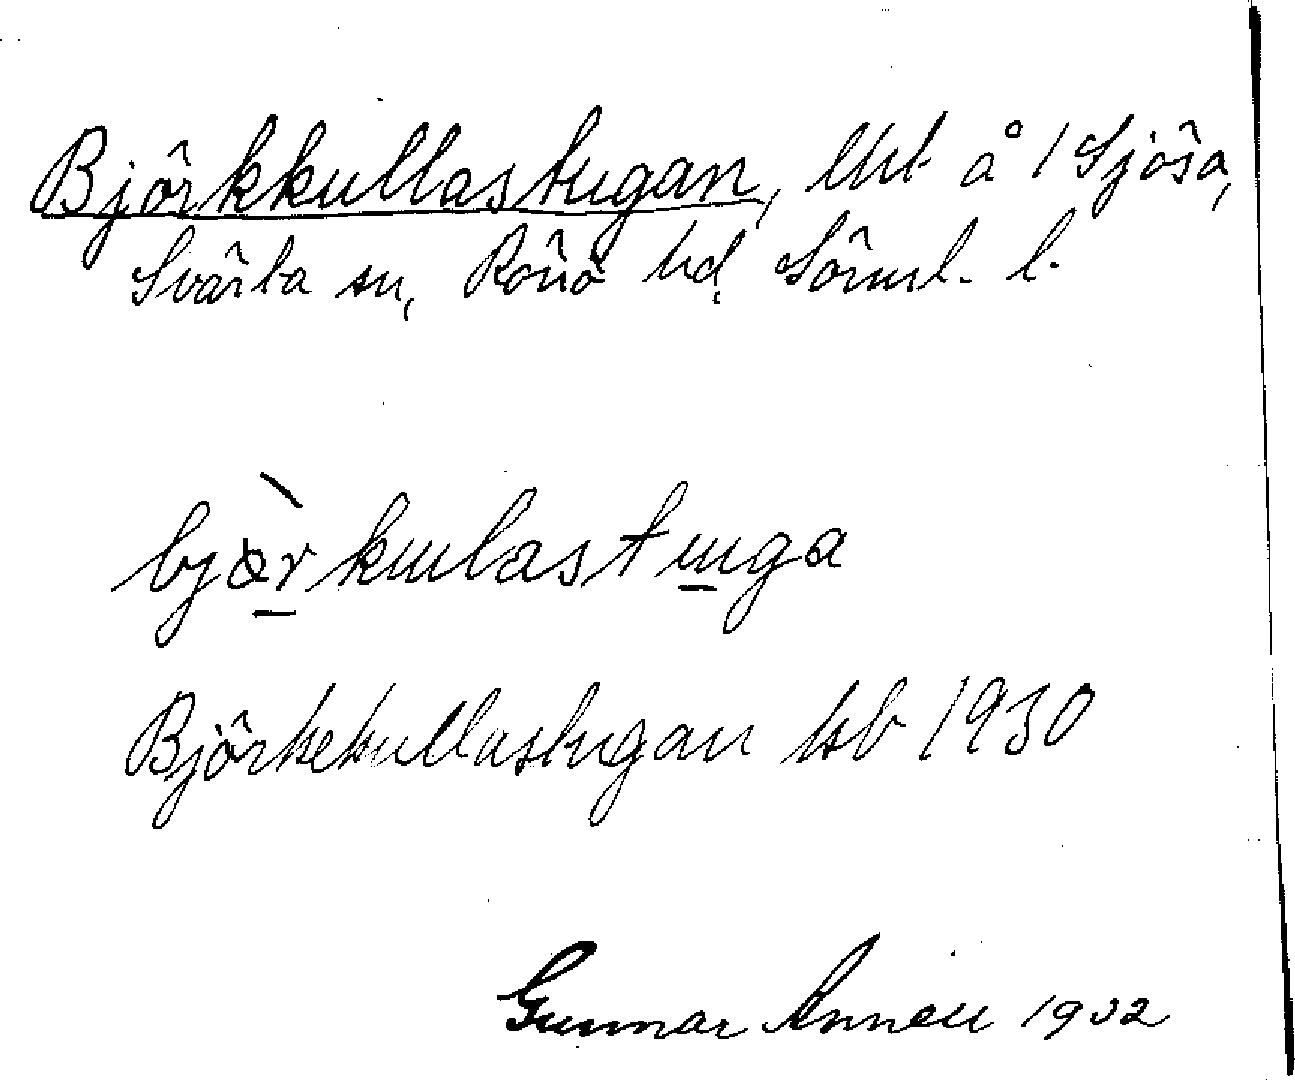 Björkkullastugan, lht å 1 Sjösa,
Svärta sn, Rönö hd, Söml. l.
bjærkullastuga
Björkekullastugan kb 1930
Gunnar 1932